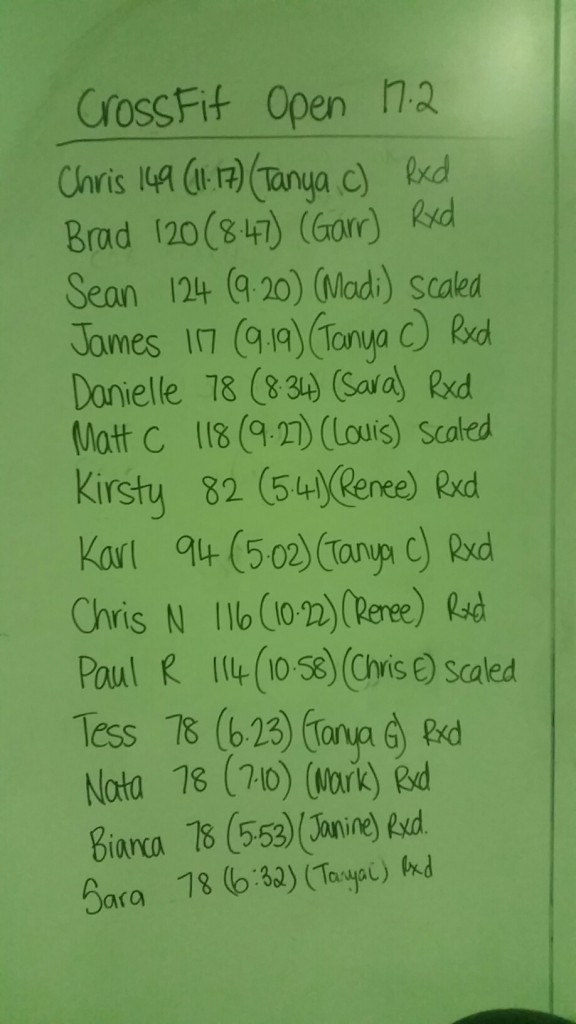 CrossFit Open 17.2
Chris 149 (11.17) (Tanya C) Rxd
Brad 120 (8.47) (Garr) Rxd
Sean 124 (9.20) (Madi) Scaled
James 117 (9.19) (Tanya C) Rxd
Danielle 78 (8.34) (Sara) Rxd
Matt C 118 (9.27) (Louis) Scaled
Kirsty 82 (5.41) (Renee) Rxd
Karl 94 (5.02) (Tanya C) Rxd
Chris N 116 (10.22) (Renee) Rxd
Paul R 114 (10.58) (Chris E) Scaled
Tess 78 (6.23) (Tanya G) Rxd
Nata 78 (7.10) (Mark) Rxd
Bianca 78 (5.53) (Janine) Rxd.
Sara 78 (6:32) (Tanya C) Rxd